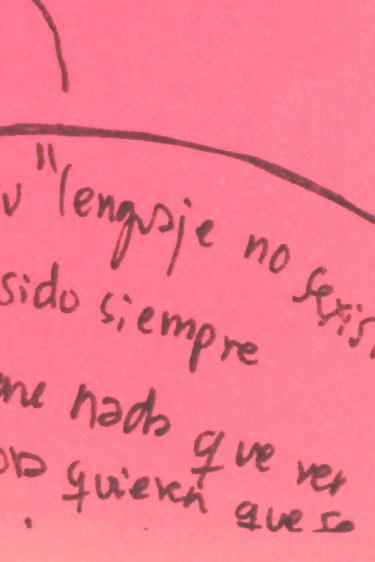 "lenguaje no sexis
sido siempre
ene nada que ver
ora quieren que se